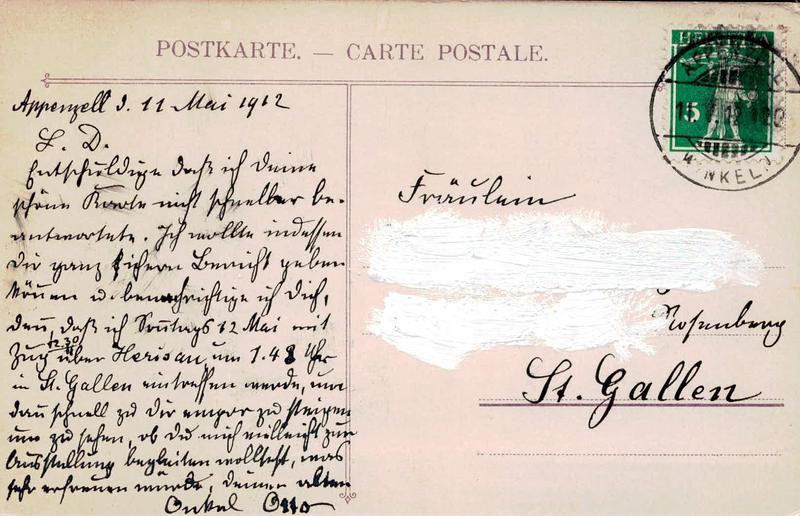 POSTKARTE. — CARTE POSTALE.
HELVETIA
5
APPENZELL
WINKELN
Appenzell d. 11 Mai 1912
L. D.
Entschuldige daß ich Deine
schöne Karte nicht schneller be-
antwortete. Ich wollte indessen
Dir ganz sichern Bericht geben
können u. benachrichtige ich Dich,
denn, daß ich Sonntags 12 Mai mit
12.30
Zug über Herisau um 1.48 Uhr
in St. Gallen eintreffen werde, um
dan schnell zu Dir empor zu steigen
um zu sehen, ob Du mich vielleicht zur
Ausstellung begleiten wolltest, was
sehr erfreuen würde, Deinen alten
Onkel Otto
Fräulein
Rosenberg
St. Gallen